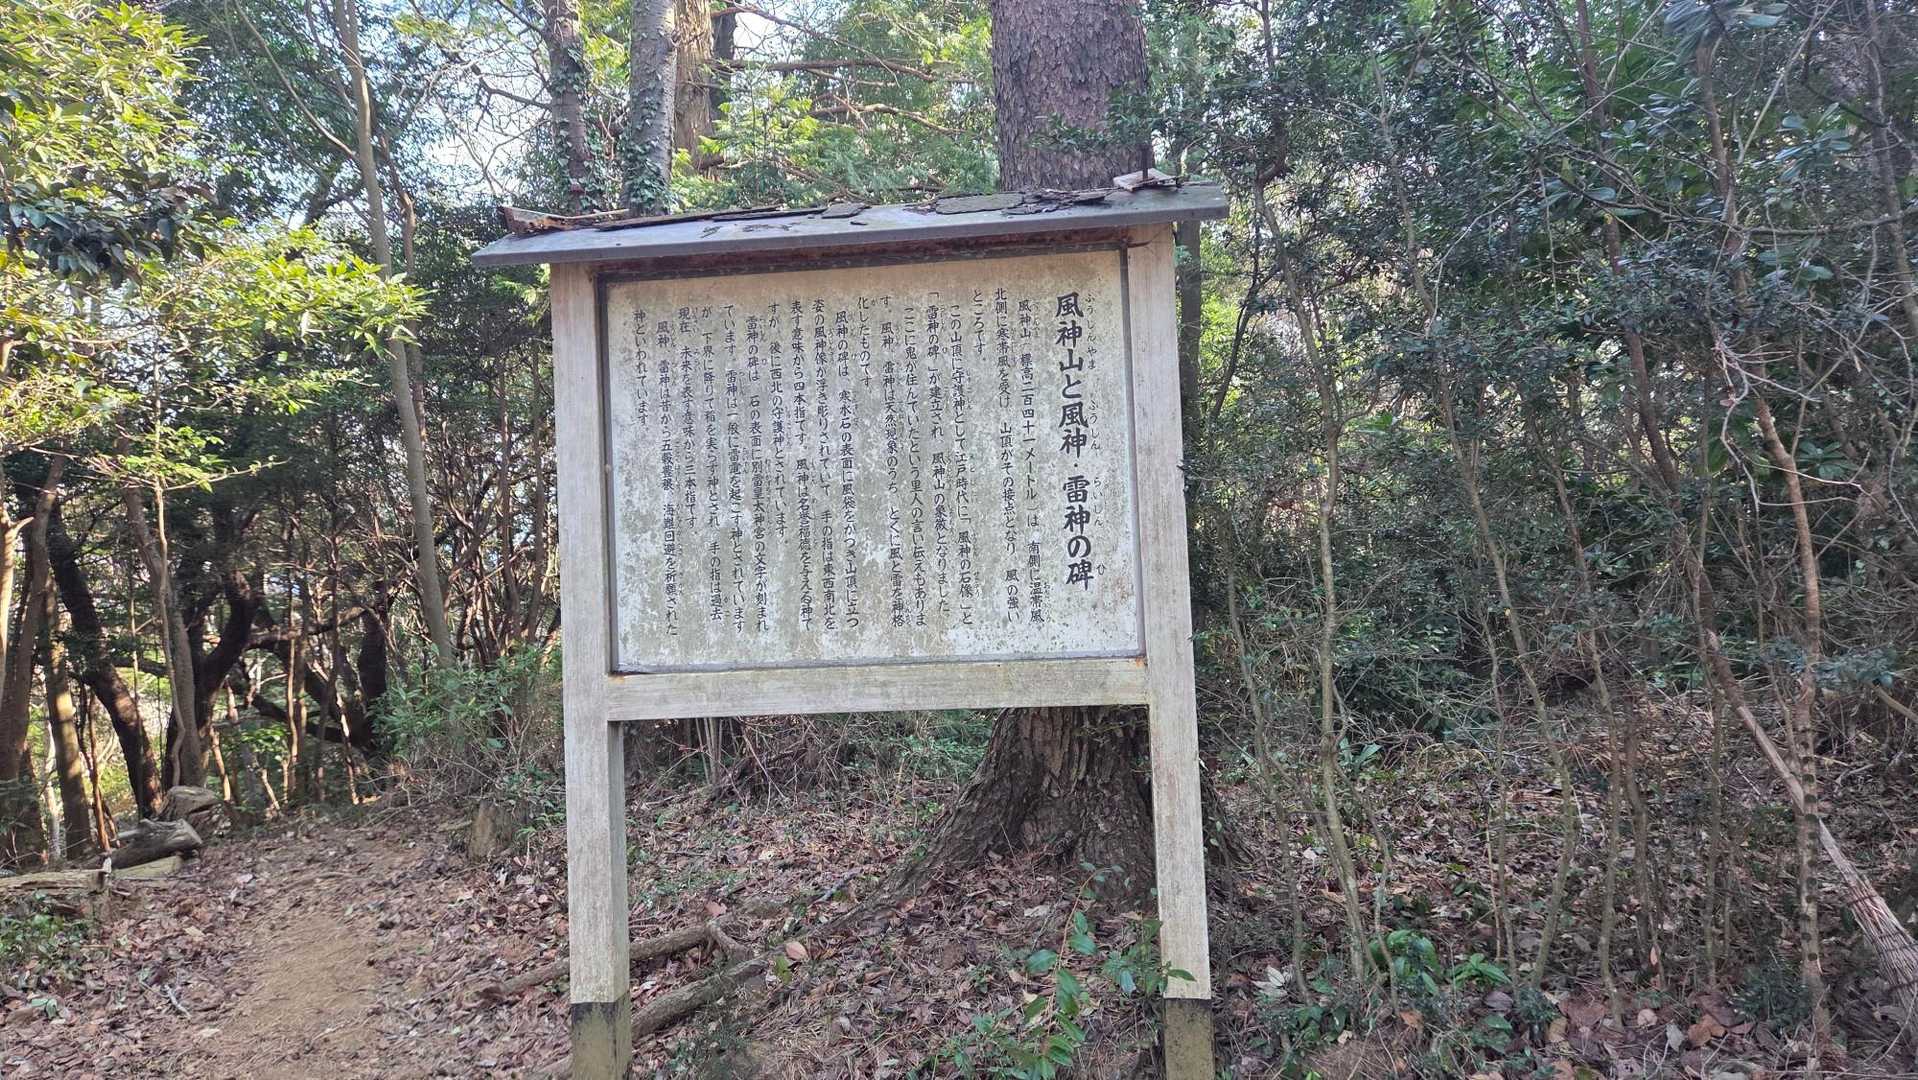 風神山と風神・雷神の碑
風神山（標高二百四十一メートル）は、南側に温帯風、
北側に寒帯風を受け、山頂がその接点となり、風の強い
ところです。
この山頂に守護神として江戸時代に「風神の石像」と
「雷神の碑」が建立され、風神山の象徴となりました。
ここに鬼が住んでいたという里人の言い伝えもありま
す。風神、雷神は天然現象のうち、とくに風と雷を神格
化したものです。
風神の碑は、寒水石の表面に風袋をかつぎ山頂に立つ
姿の風神像が浮き彫りされていて、手の指は東西南北を
表す意味から四本指です。風神は名誉福徳を与える神で
すが、後に西北の守護神とされています。
雷神の碑は、石の表面に別雷皇太神宮の文字が刻まれ
ています。雷神は一般に雷電を起こす神とされています
が、下界に降りて稲を実らす神とされ、手の指は過去、
現在、未来を表す意味から三本指です。
風神、雷神は昔から五穀豊穣、海難回避を祈願された
神といわれています。